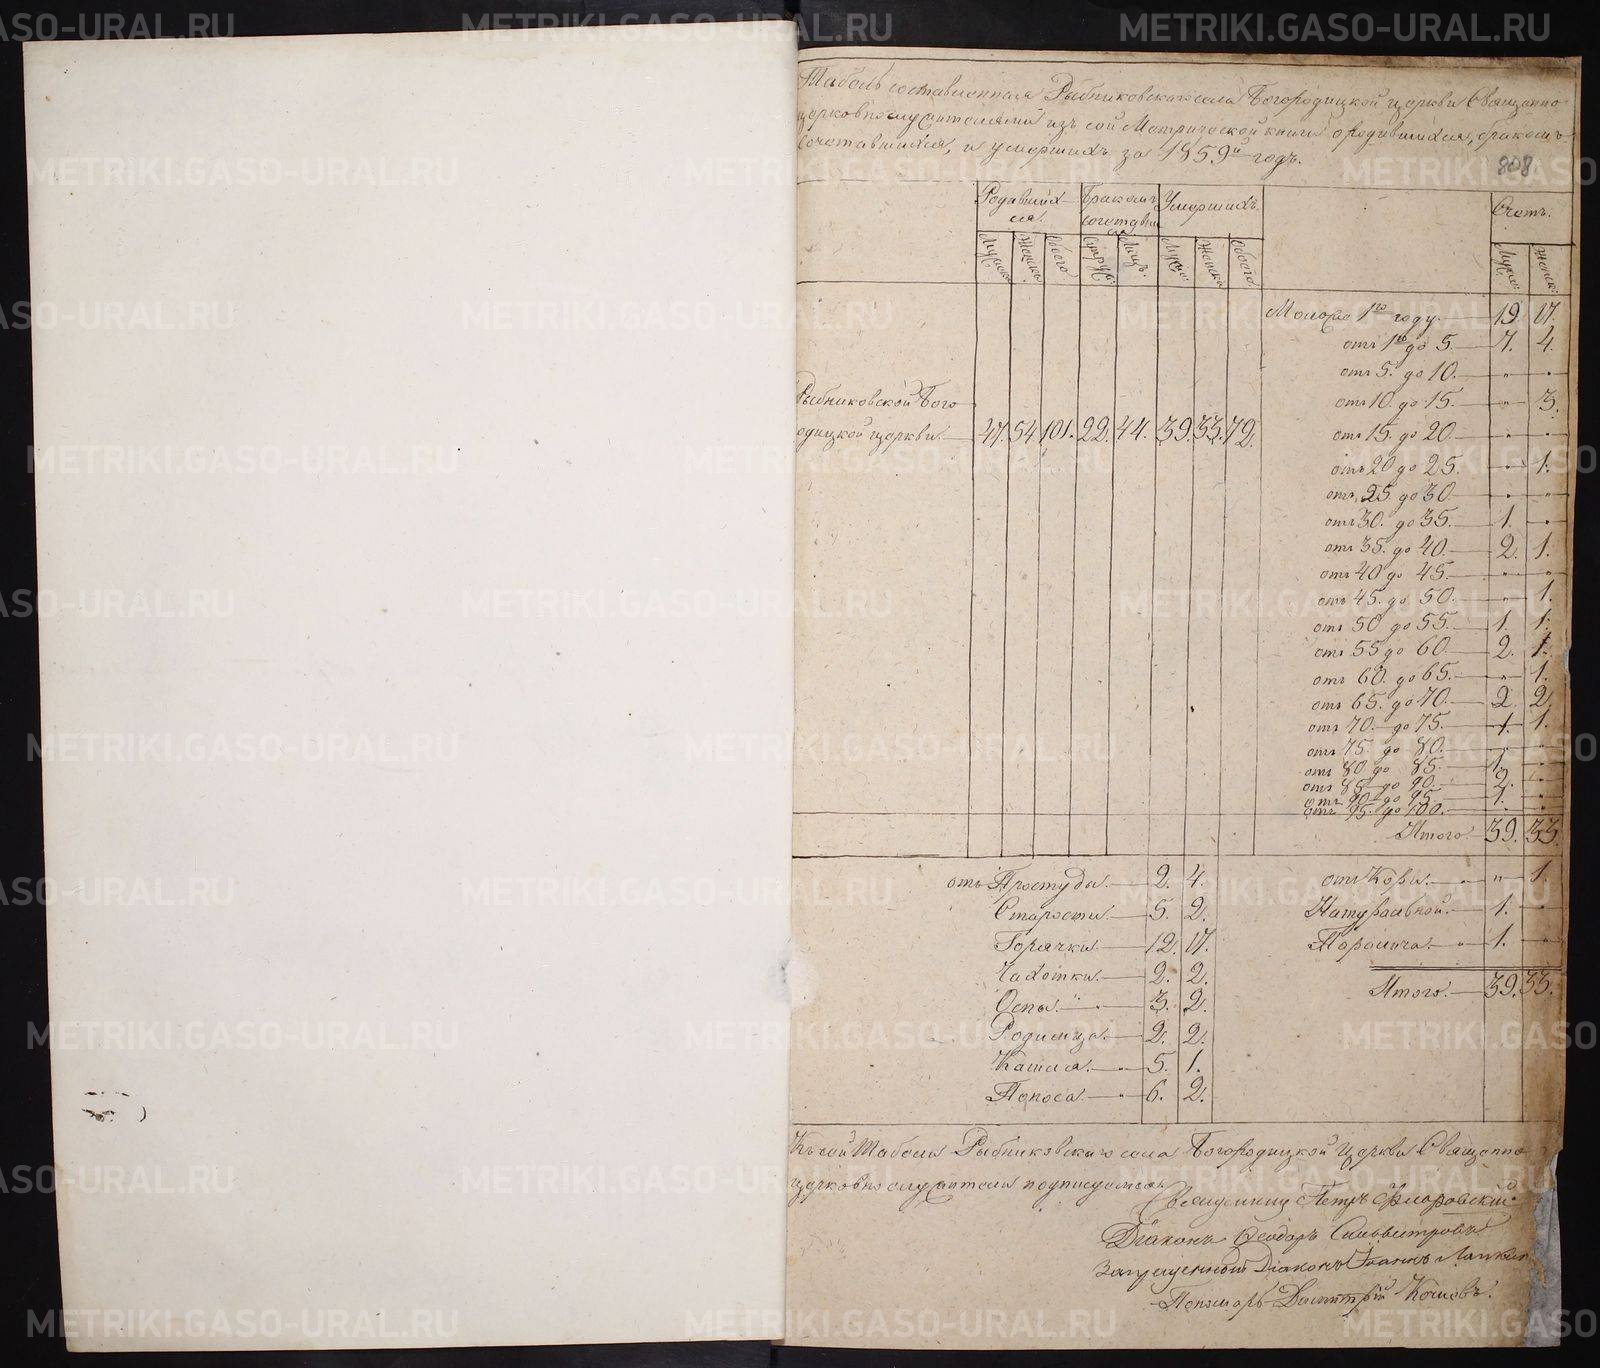 Табель составленная Рыбниковскаго села Богородицкой церкви Священно
церковнослужителями изъ сей Метрической книги о родившихся, бракомъ
сочетавшихся, и умершихъ за 1859й годъ.
808.
Родивших Бракомъ Умершихъ. Счетъ.
ся. сочетавши
ся
Мужска Женска Обоего Супруж: Лицъ. Мужс Женска Обоего Мужс: Женск:
Моложе 1го году. 19. 17.
отъ 1го до 5. 7. 4.
отъ 5. до 10. " "
Рыбниковской Бого
отъ 10. до 15. " 3.
родицкой церкви. 47. 54. 101. 22. 44. 39. 33. 72.
отъ 15. до 20. " "
отъ 20 до 25. " 1.
отъ 25. до 30. " "
отъ 30. до 35. 1. "
отъ 35. до 40. 2. 1.
отъ 40 до 45. " "
отъ 45. до 50. " 1.
отъ 50 до 55. 1. 1.
отъ 55 до 60. 2. 1.
отъ 60. до 65. " 1.
отъ 65. до 70. 2. 2.
отъ 70. до 75. 1. 1.
отъ 75. до 80. " "
отъ 80 до 85. 1. "
отъ 85. до 90. 2. "
отъ 90 до 95. 1. "
отъ 95. до 100. " "
Итого. 39. 33.
отъ Простуды. 2. 4. отъ Кори. " 1.
Старости. 5. 2. Натуральной. 1. "
Горячки. 12. 17. Паралича. 1. "
Чахотки. 2. 2. Итого. 39. 33.
Оспы. 3. 2.
Родимца. 2. 2.
Кашля. 5. 1.
Поноса. 6. 2.
Къ сей Табели Рыбниковскаго села Богородицкой церкви Священно
церковнослужители подписуемся
Священник Петръ Флоровскій
Діаконъ Ѳеодоръ Сильвестровъ
Запрещенный Діаконъ Іоаннъ Лапкин
Пономарь Димитрій Кочневъ.
METRIKI.GASO-URAL.RU